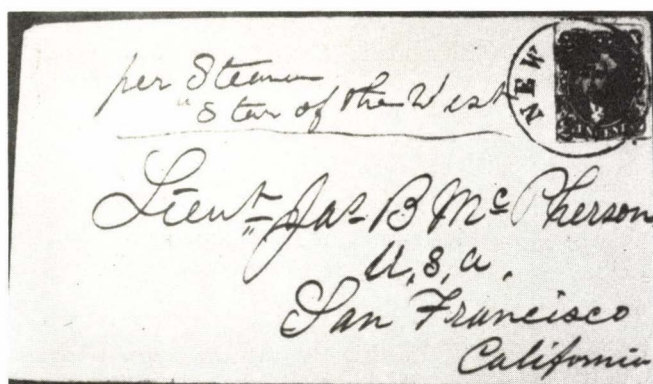 per Steamer
"Star of the West"
NEW
Lieut Jas B McPherson
U.S.A.
San Francisco
California